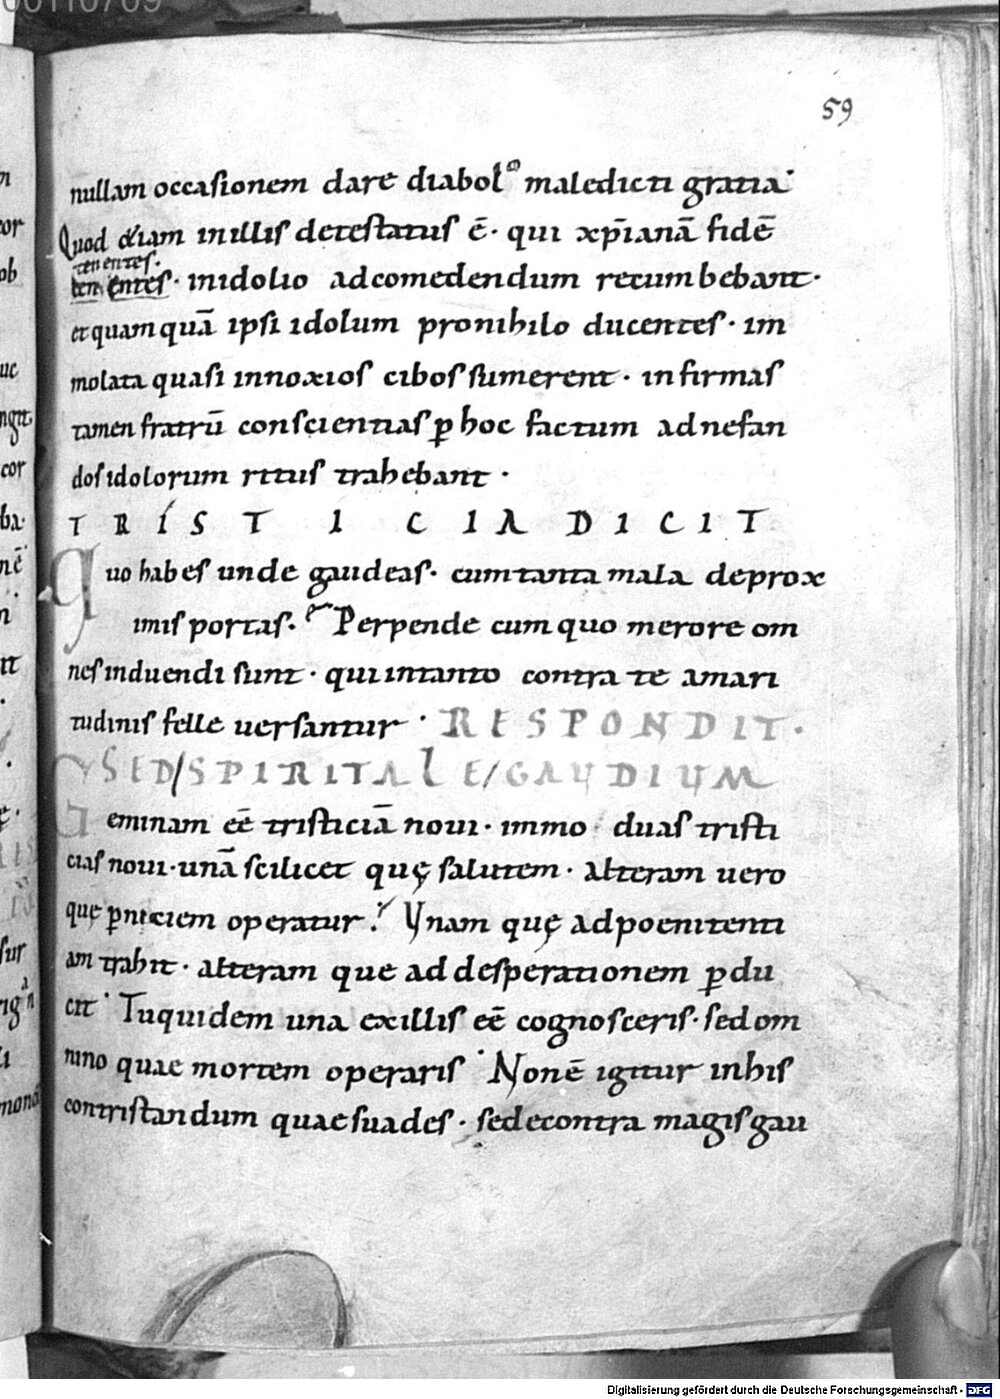 00110709
59
nullam occasionem dare diabolo maledicti gratia.
Quod etiam in illis detestatus ē. qui xp̄ianā fidē
tenentes.
tenentes. in idolio ad comedendum recumbebant.
et quamquā ipsi idolum pro nihilo ducentes. im
molata quasi innoxios cibos sumerent. infirmas
tamen fratrū conscientias p̱ hoc factum ad nefan
dos idolorum ritus trahebant.
TRISTICIA DICIT
Quo habes unde gaudeas. cum tanta mala de prox
imis portas. Perpende cum quo merore om
nes induendi sunt. qui in tanto contra te amari
tudinis felle uersantur. RESPONDIT.
SED/SPIRITALE/GAUDIUM
Geminam eē tristiciā noui. immo duas tristi
cias noui. unā scilicet quę salutem. alteram uero
quę p̱niciem operatur. Vnam quę ad poenitenti
am trahit. alteram que ad desperationem p̱du
cit. Tu quidem una ex illis eē cognosceris. sed om
nino quae mortem operaris. Non ē igitur in his
contristandum quae suades. sed e contra magis gau
Digitalisierung gefördert durch die Deutsche Forschungsgemeinschaft - DFG